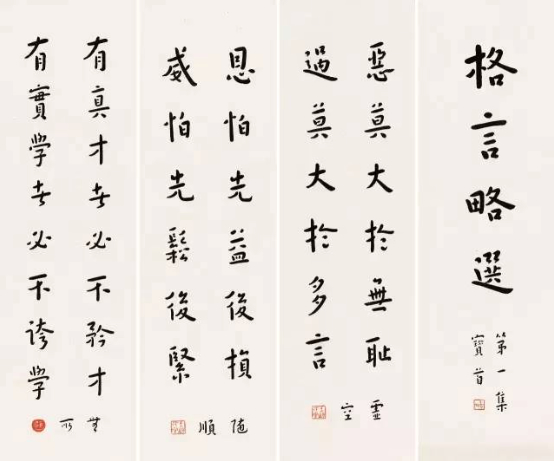 格言略選
第一集
寶首
惡莫大於無恥
過莫大於多言
虛
空
恩怕先益後損
威怕先鬆後緊
隨
順
有真才者必不矜才
有實学者必不誇学
無
所